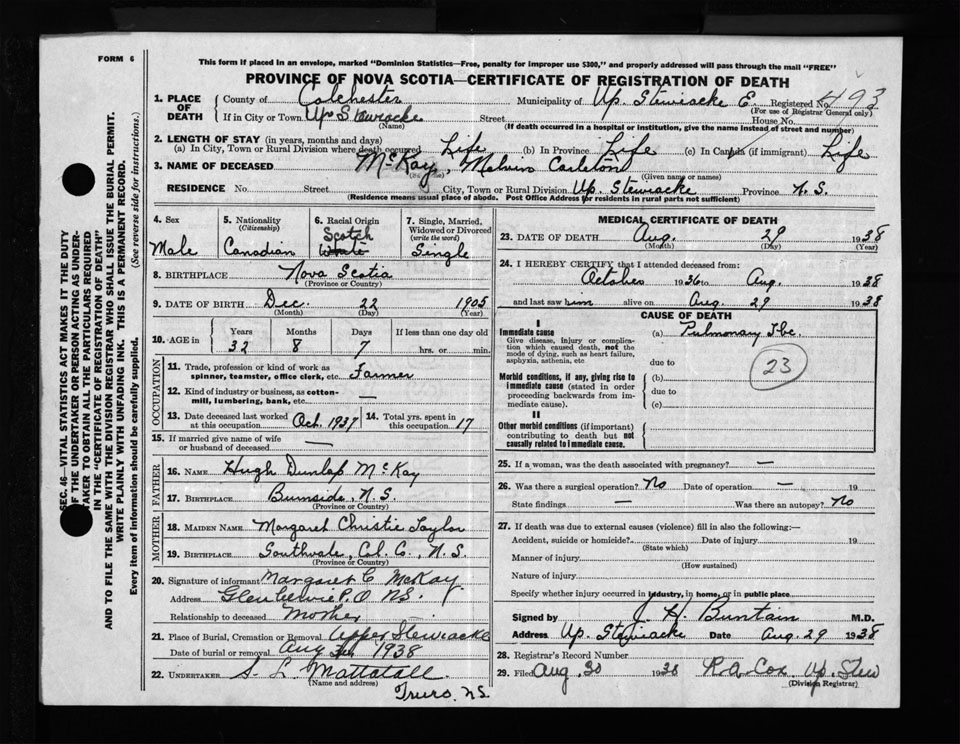 FORM 6
This form if placed in an envelope, marked "Dominion Statistics—Free, penalty for improper use $300," and properly addressed will pass through the mail "FREE"
PROVINCE OF NOVA SCOTIA—CERTIFICATE OF REGISTRATION OF DEATH
1. PLACE OF DEATH County of Colchester Municipality of Up. Stewiacke E. Registered No. 493
(For use of Registrar General only)
If in City or Town Up. Stewiacke Street House No.
(Name) (If death occurred in a hospital or institution, give the name instead of street and number)
2. LENGTH OF STAY (in years, months and days)
(a) In City, Town or Rural Division where death occurred Life (b) In Province Life (c) In Canada (if immigrant) Life
3. NAME OF DECEASED McKay, Melvin Carleton
(Given name or names)
RESIDENCE No. Street City, Town or Rural Division Up. Stewiacke Province N.S.
(Residence means usual place of abode. Post Office Address for residents in rural parts not sufficient)
4. Sex 5. Nationality 6. Racial Origin 7. Single, Married,
(Citizenship) Scotch Widowed or Divorced
(write the word)
Male Canadian White Single
8. BIRTHPLACE Nova Scotia
(Province or Country)
9. DATE OF BIRTH Dec. 22 1905
(Month) (Day) (Year)
10. AGE in Years Months Days If less than one day old
32 8 7 hrs. or min.
OCCUPATION
11. Trade, profession or kind of work as
spinner, teamster, office clerk, etc. Farmer
12. Kind of industry or business, as cotton-
mill, lumbering, bank, etc. —
13. Date deceased last worked at this occupation Oct. 1937 14. Total yrs. spent in this occupation 17
15. If married give name of wife
or husband of deceased —
FATHER
16. NAME Hugh Dunlap McKay
17. BIRTHPLACE Burnside, N.S.
(Province or Country)
MOTHER
18. MAIDEN NAME Margaret Christie Taylor
19. BIRTHPLACE Southvale, Col. Co., N.S.
(Province or Country)
20. Signature of informant Margaret C McKay
Address P.O. N.S.
Relationship to deceased Mother
21. Place of Burial, Cremation or Removal Upper Stewiacke
Date of burial or removal Aug 1938
22. UNDERTAKER S. L. Mattatall
(Name and address)
Truro, N.S.
MEDICAL CERTIFICATE OF DEATH
23. DATE OF DEATH Aug. 29 1938
(Month) (Day)
24. I HEREBY CERTIFY that I attended deceased from:
October 1936 to Aug. 1938
and last saw him alive on Aug. 29 1938
CAUSE OF DEATH
I
Immediate cause (a) Pulmonary Tbc.
Give disease, injury or complica-
tion which caused death, not the
mode of dying, such as heart failure,
asphyxia, asthenia, etc due to
23
Morbid conditions, if any, giving rise to (b)
immediate cause (stated in order due to
proceeding backwards from im-
mediate cause). (c)
II
Other morbid conditions (if important)
contributing to death but not
causally related to immediate cause.
25. If a woman, was the death associated with pregnancy? —
26. Was there a surgical operation? No Date of operation — 19
State findings — Was there an autopsy? No
27. If death was due to external causes (violence) fill in also the following:—
Accident, suicide or homicide? Date of injury 19
(State which)
Manner of injury
(How sustained)
Nature of injury
Specify whether injury occurred in industry, in home, or in public place
Signed by J. H. Buntain M.D.
Address Up. Stewiacke Date Aug. 29 1938
28. Registrar's Record Number
29. Filed Aug. 30 1938 R A Cox Up. Stew
(Division Registrar)
SEC. 46—VITAL STATISTICS ACT MAKES IT THE DUTY
OF THE UNDERTAKER OR PERSON ACTING AS UNDER-
TAKER TO OBTAIN ALL THE PARTICULARS REQUIRED
IN THE "CERTIFICATE OF REGISTRATION OF DEATH"
AND TO FILE THE SAME WITH THE DIVISION REGISTRAR WHO SHALL ISSUE THE BURIAL PERMIT.
WRITE PLAINLY WITH UNFADING INK. THIS IS A PERMANENT RECORD.
Every item of information should be carefully supplied. (See reverse side for instructions.)